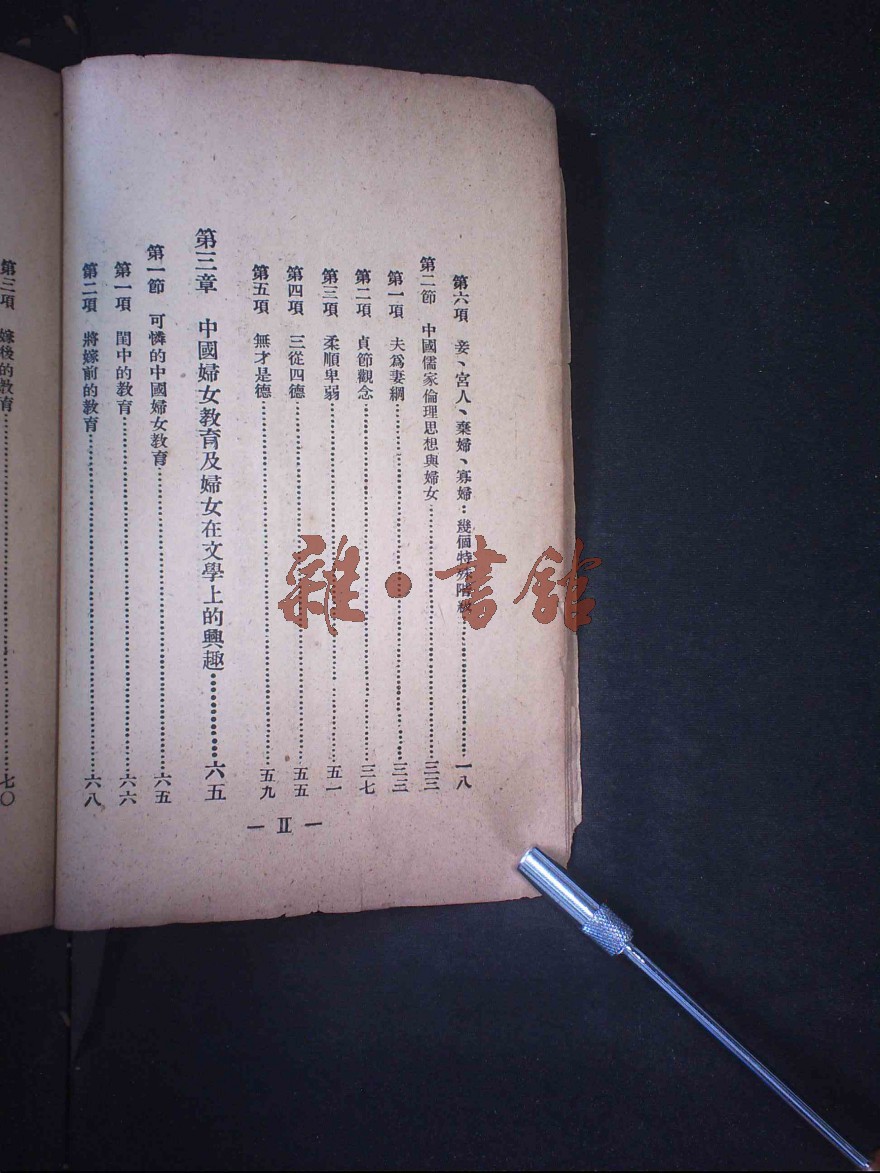 第六項 妾、宮人、棄婦、寡婦·幾個特殊階級……………………一八
第二節 中國儒家倫理思想與婦女……………………三三
第一項 夫爲妻綱……………………三三
第二項 貞節觀念……………………三七
第三項 柔順卑弱……………………五一
第四項 三從四德……………………五五
第五項 無才是德……………………五九
第三章 中國婦女教育及婦女在文學上的興趣…………六五
第一節 可憐的中國婦女教育……………………六五
第一項 閨中的教育……………………六六
第二項 將嫁前的教育……………………六八
— II —
第三項 嫁後的教育……………………七〇
雜·書館